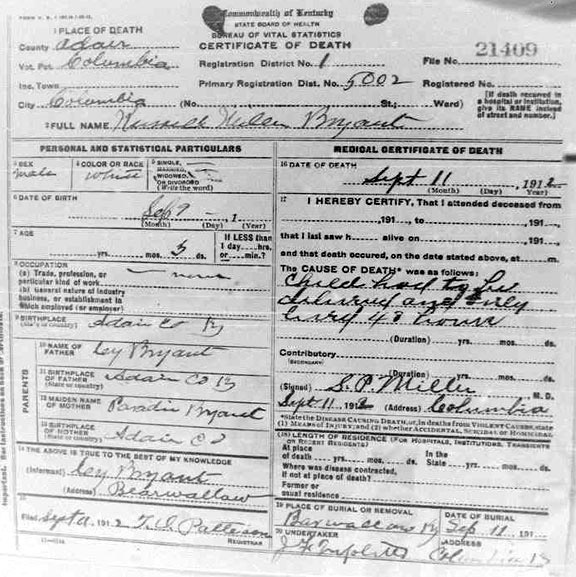 Commonwealth of Kentucky
STATE BOARD OF HEALTH
BUREAU OF VITAL STATISTICS
CERTIFICATE OF DEATH
1 PLACE OF DEATH
County Adair
Vot. Pct. Columbia
Inc. Town
City Columbia (No. St.; Ward)
Registration District No. 1
Primary Registration Dist. No. 5002
File No. 21409
Registered No.
[If death occurred in a hospital or institution, give its NAME instead of street and number.]
2 FULL NAME Russell Bryant
PERSONAL AND STATISTICAL PARTICULARS
3 SEX
male
4 COLOR OR RACE
White
5 SINGLE, MARRIED, WIDOWED OR DIVORCED
(Write the word)
6 DATE OF BIRTH
Sep 9 1
(Month) (Day) (Year)
7 AGE
yrs. mos. 3 ds.
If LESS than 1 day hrs. or min.?
8 OCCUPATION
(a) Trade, profession, or particular kind of work none
(b) General nature of industry business, or establishment in which employed (or employer)
9 BIRTHPLACE
(State or country) Adair Co Ky
PARENTS
10 NAME OF FATHER Cy Bryant
11 BIRTHPLACE OF FATHER
(State or country) Adair Co Ky
12 MAIDEN NAME OF MOTHER Bryant
13 BIRTHPLACE OF MOTHER
(State or country) Adair Co
14 THE ABOVE IS TRUE TO THE BEST OF MY KNOWLEDGE
(Informant) Cy Bryant
(Address) Bearwallow
15
Filed Sept 11 1912
REGISTRAR
MEDICAL CERTIFICATE OF DEATH
16 DATE OF DEATH
Sept 11, 1912
(Month) (Day) (Year)
17 I HEREBY CERTIFY, That I attended deceased from
, 191 , to , 191 ,
that I last saw h alive on , 191 ,
and that death occured, on the date stated above, at m.
The CAUSE OF DEATH* was as follows:
Child had to be
and only
48 hours
(Duration) yrs. mos. ds.
Contributory
(SECONDARY)
(Duration) yrs. mos. ds.
(Signed) S. P. Miller M. D.
Sept 11, 1912 (Address) Columbia
*State the DISEASE CAUSING DEATH, or, in deaths from VIOLENT CAUSES, state (1) MEANS OF INJURY; and (2) whether ACCIDENTAL, SUICIDAL or HOMICIDAL.
18 LENGTH OF RESIDENCE (FOR HOSPITALS, INSTITUTIONS, TRANSIENTS OR RECENT RESIDENTS)
At place of death yrs. mos. ds. In the State yrs. mos. ds.
Where was disease contracted, if not at place of death?
Former or usual residence
19 PLACE OF BURIAL OR REMOVAL
Ky
DATE OF BURIAL
Sep 11, 191
20 UNDERTAKER
ADDRESS
Columbia Ky